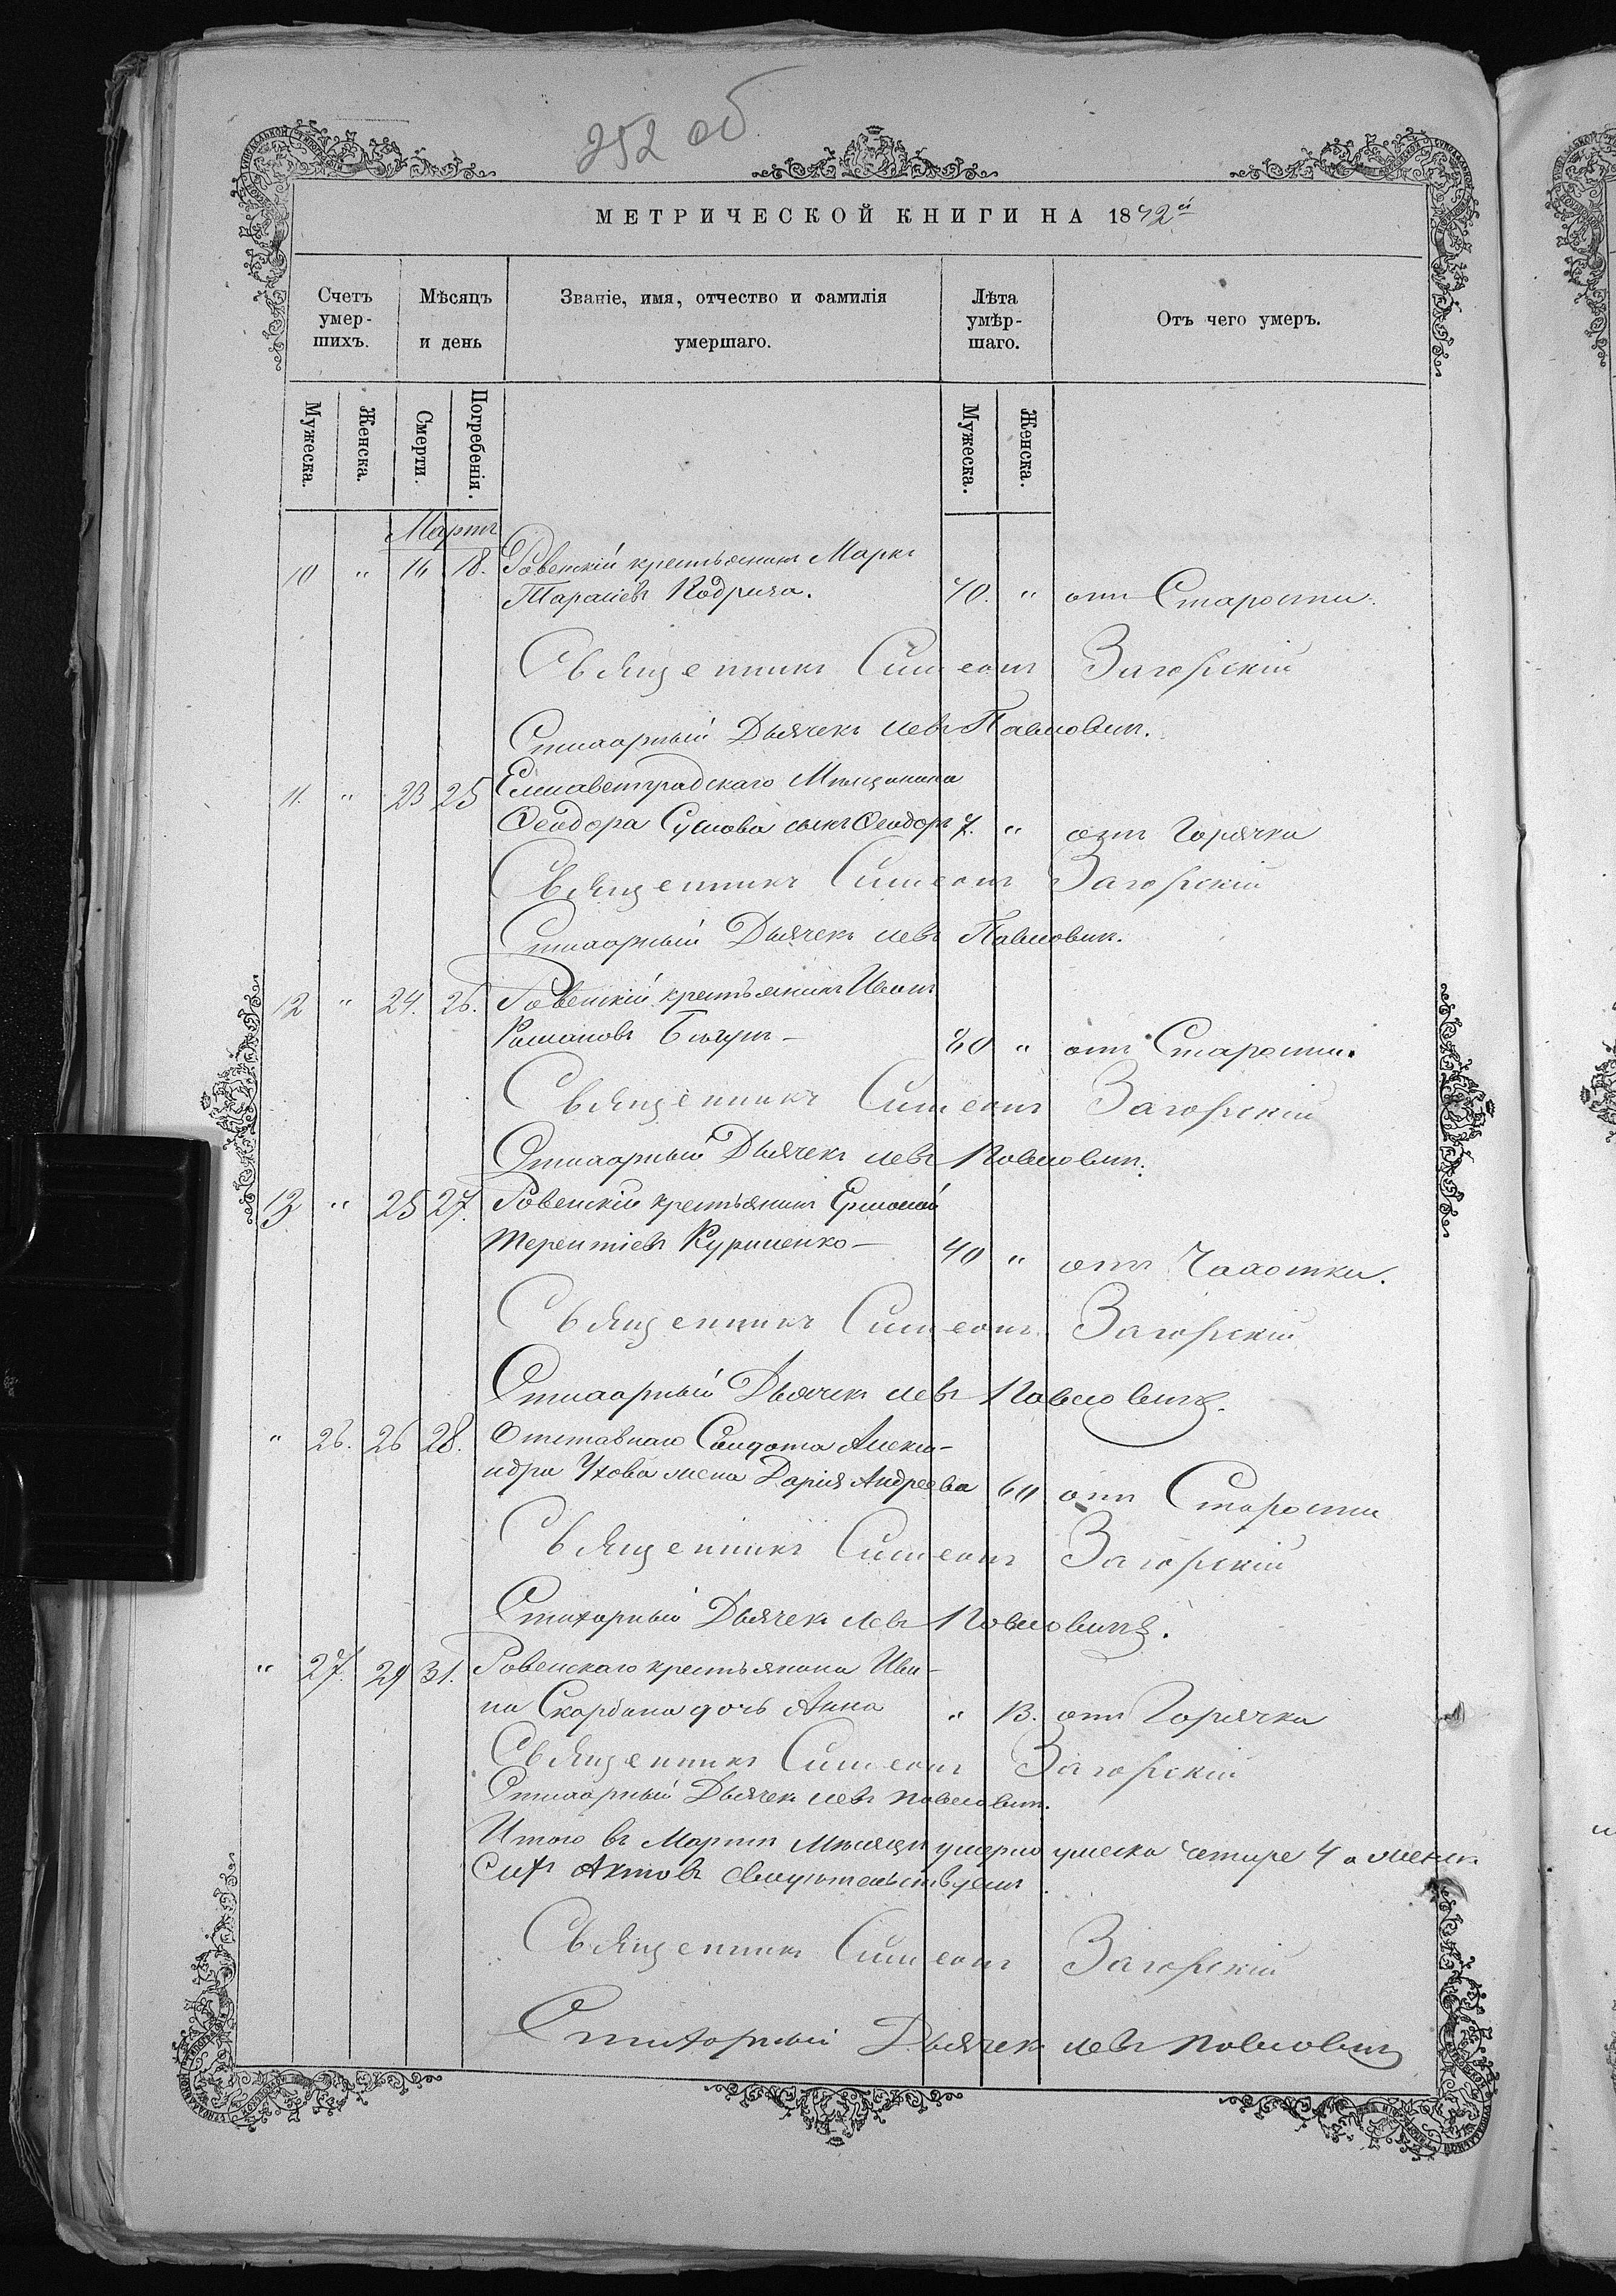 252 об
МЕТРИЧЕСКОЙ КНИГИ НА 1842й
Счетъ умер-шихъ.
Мѣсяцъ и день
Званіе, имя, отчество и фамилія умершаго.
Лѣта умѣр-шаго.
Отъ чего умеръ.
Мужеска.
Женска.
Смерти.
Погребенія.
Мужеска.
Женска.
Мартъ
10 " 16 18. Ровенскій крестьянинъ Марко
Тарасіевъ 70. " отъ Старости.
Священникъ Симеонъ Загорскій
Стихарный Дьячекъ Левъ Павловичъ.
11. " 23 25 Елисаветградскаго Мѣщанина
Ѳеодора Суслова сынъ Ѳеодоръ 7. " отъ Горячки
Священникъ Симеонъ Загорскій
Стихарный Дьячекъ Левъ Павловичъ.
12 " 24. 26. Ровенскій крестьянинъ Иванъ
Романовъ 80 " отъ Старости.
Священникъ Симеонъ Загорскій
Стихарный Дьячекъ Левъ Павловичъ.
13 " 25 27. Ровенскій крестьянинъ Ермолай
Терентіевъ Куриленко— 40 " отъ Чахотки.
Священникъ Симеонъ Загорскій
Стихарный Дьячекъ Левъ Павловичъ.
" 26. 26 28. Отставнаго Солдата Алекса-
ндра Ухова жена Дарія Андреева 60 отъ Старости
Священникъ Симеонъ Загорскій
Стихарный Дьячекъ Левъ Павловичъ.
" 27. 29 31. Ровенскаго крестьянина Ива-
на Скорбана дочь Анна " 13. отъ Горячки
Священникъ Симеонъ Загорскій
Стихарный Дьячекъ Левъ Павловичъ.
Итого въ Мартѣ Мѣсяцѣ умерло мужеска четыре 4 а женск.
актовъ свидѣтельствуемъ
Священникъ Симеонъ Загорскій
Стихарный Дьячекъ Левъ Павловичъ